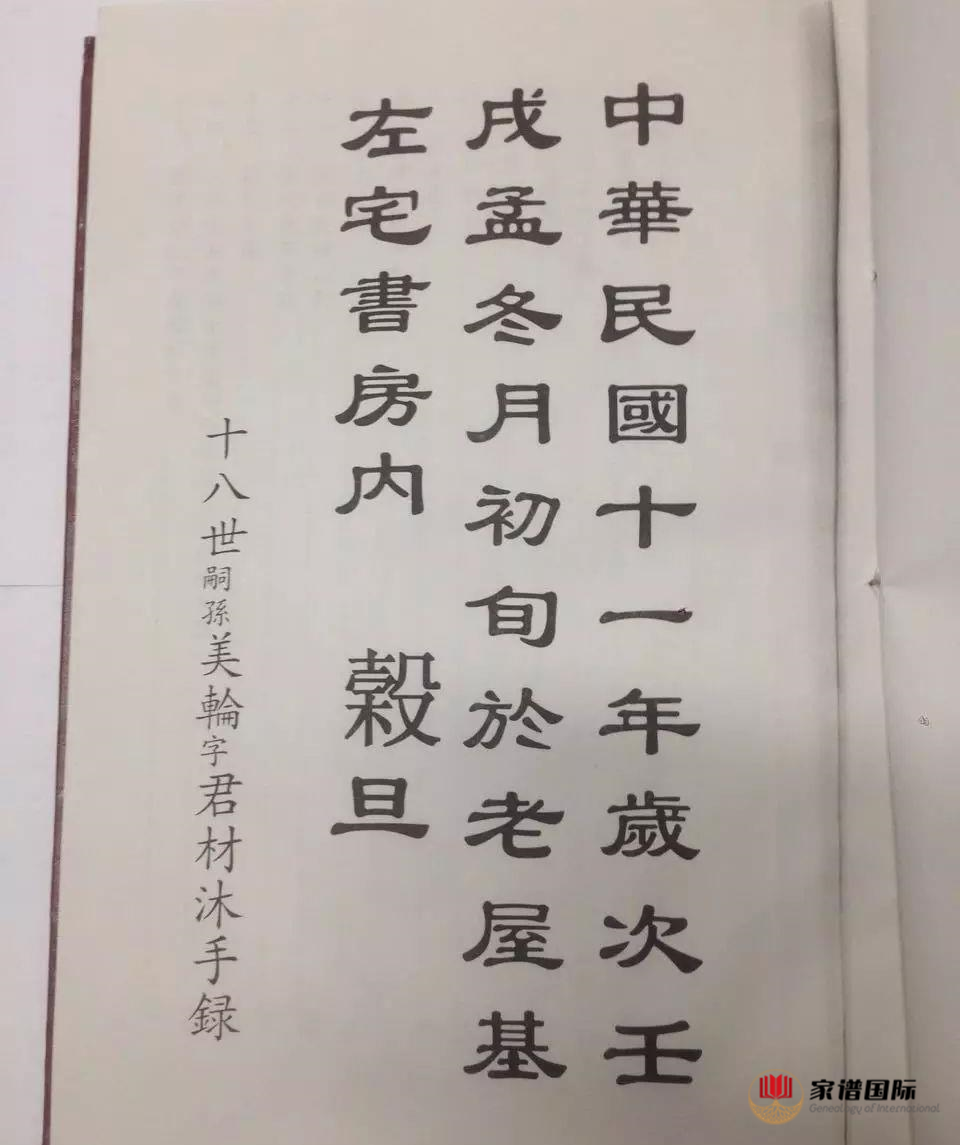 中華民國十一年歲次壬
戌孟冬月初旬於老屋基
左宅書房內 穀旦
十八世嗣孫美輪字君材沐手録
家谱国际
Genealogy of International